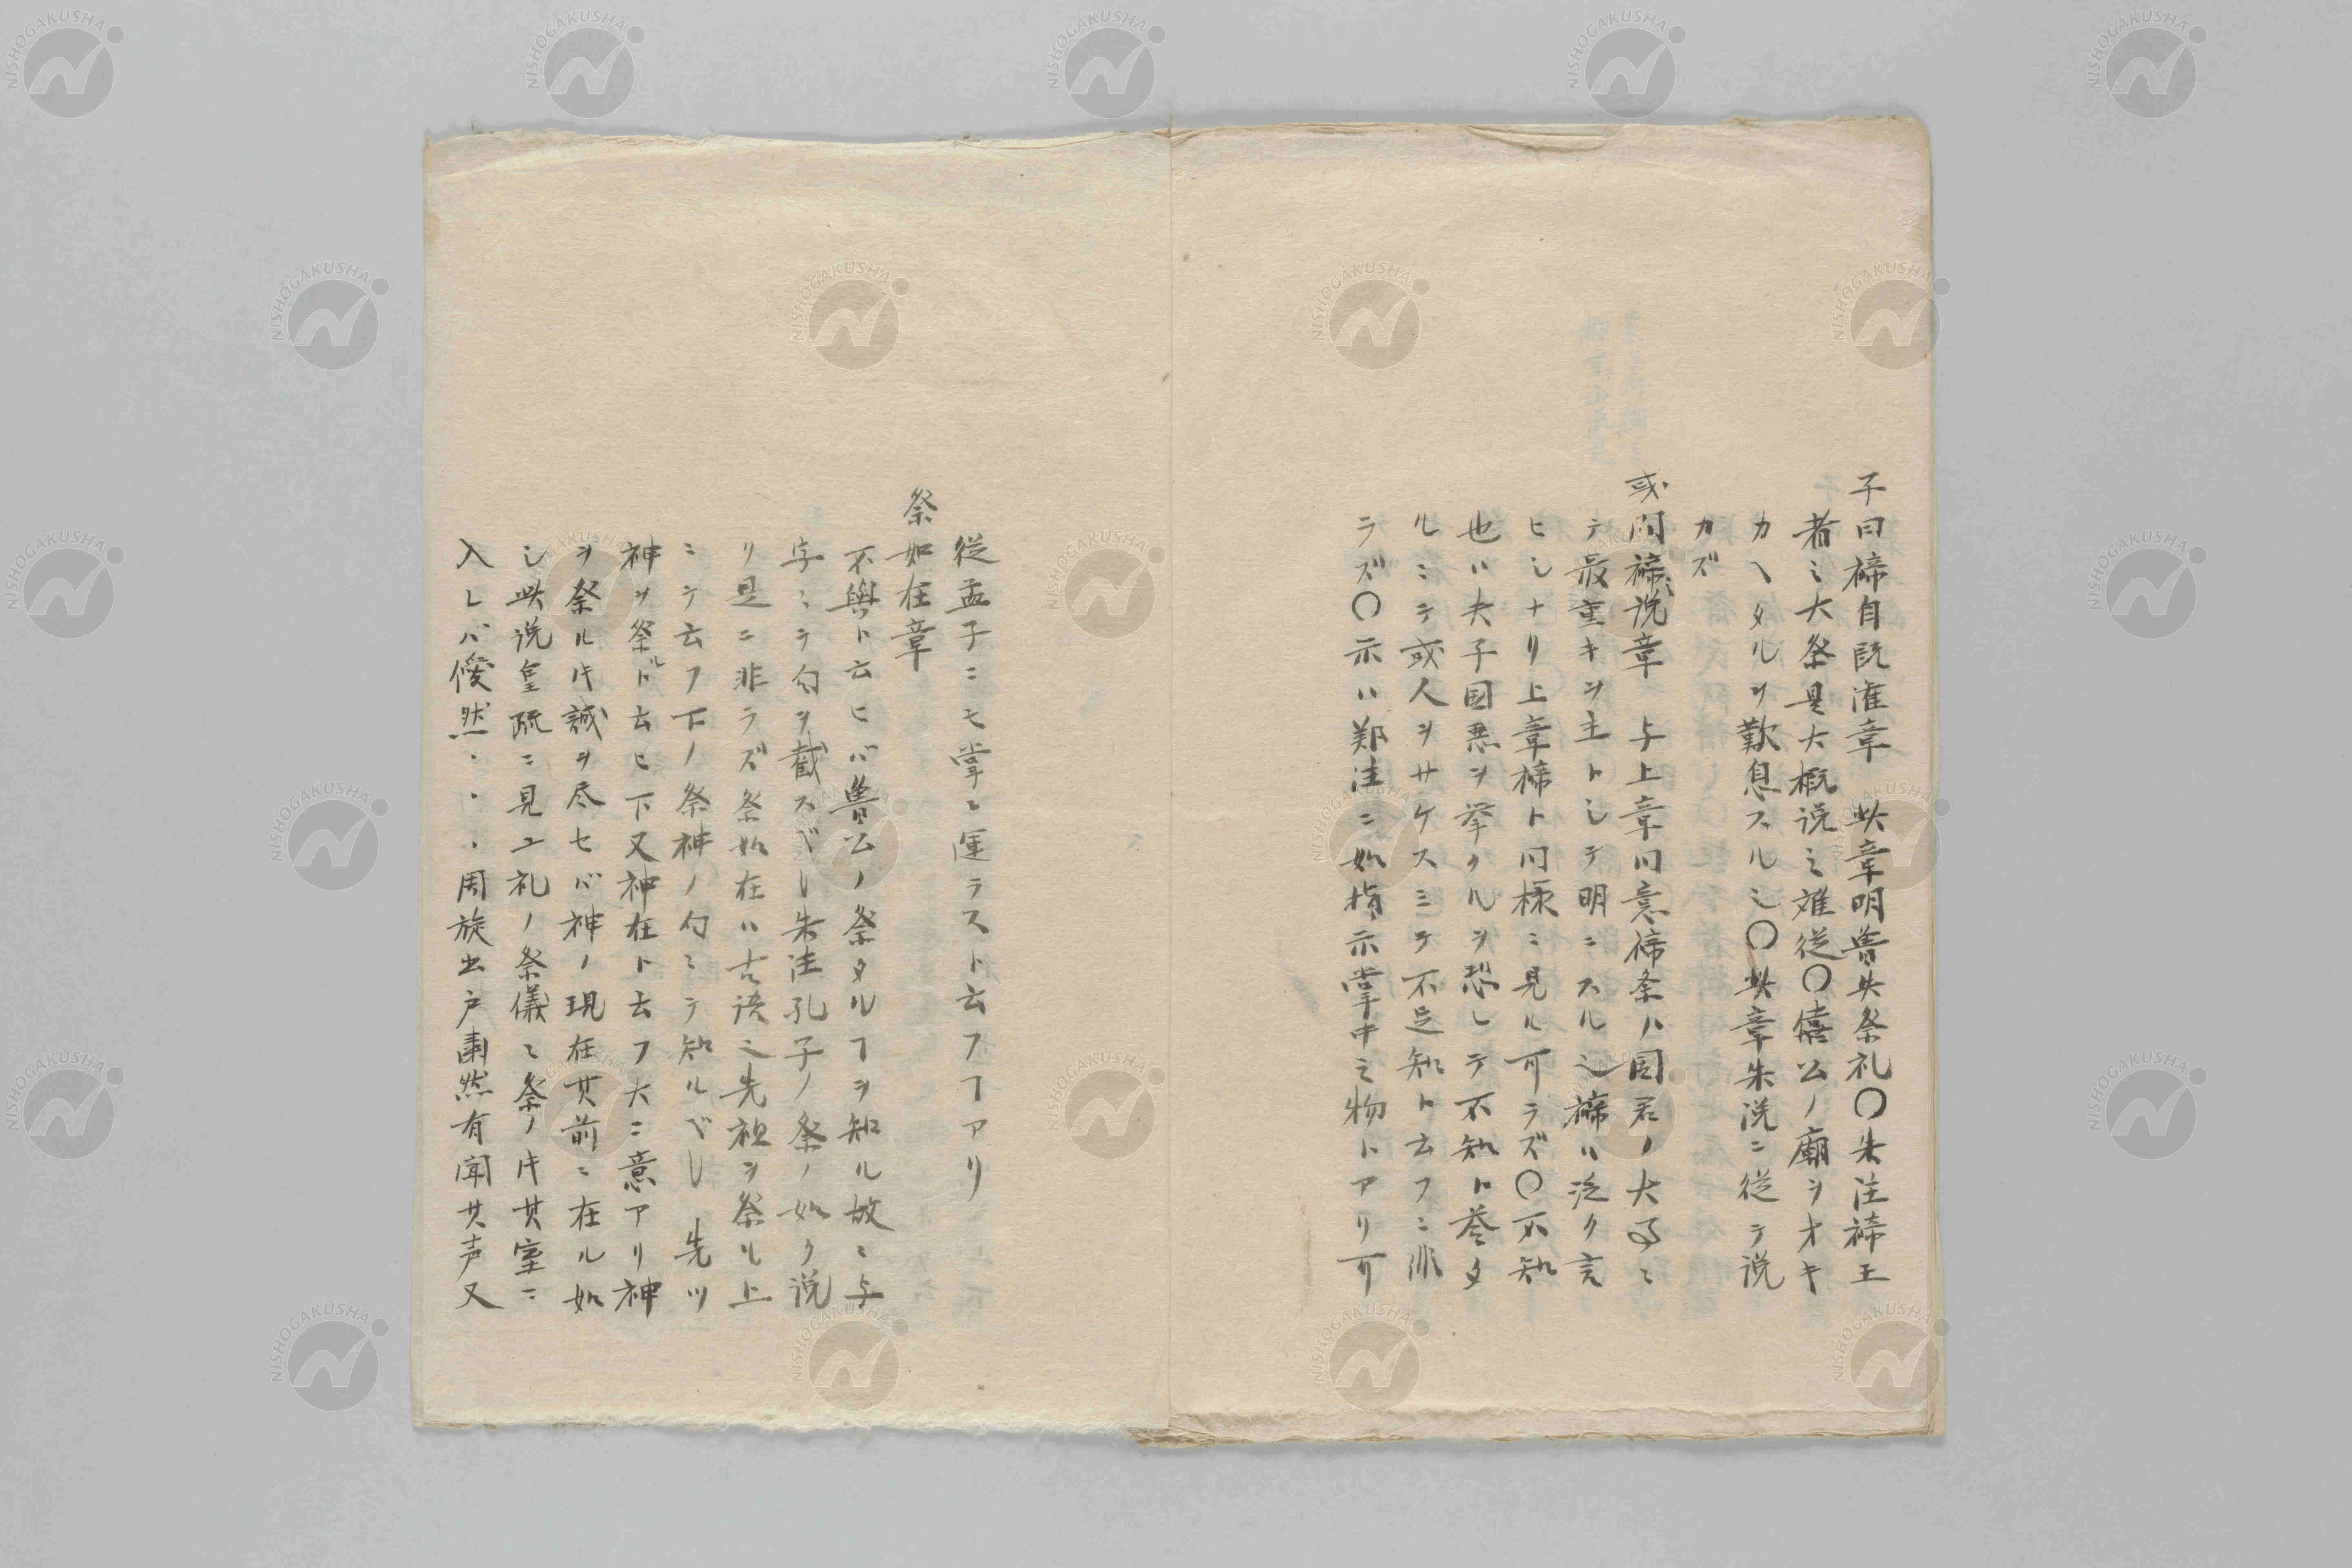 子曰禘自既潅章　此章明魯失祭礼〇朱注禘王
者之大祭是大概説之難従〇僖公ノ廟ヲオキ
カヘタルヲ歎息スル也〇此章朱説ニ従テ説
カズ
或問禘之説章　与上章同意禘条ハ国君ノ大事ニ
テ最重キヲ主トシテ明ニスル也禘ハ泛ク言
ヒシナリ上章禘ト同様ニ見ル可ラズ〇不知
也ハ夫子国悪ヲ挙クルヲ恐レテ不知ト答タ
ルニテ或人ヲサケスミテ不足知ト云フニ非
ラズ〇示ハ鄭注ニ如指示掌中之物トアリ可
従孟子ニモ掌ニ運ラスト云フヿアリ
祭如在章
不與ト云ヒバ魯公ノ祭タルヿヲ知ル故ニ与
字ニテ句ヲ截スベシ朱注孔子ノ祭ノ如ク説
リ是ニ非ラズ祭如在ハ古語之先祖ヲ祭ル上
ニテ云フ下ノ祭神ノ句ニテ知ルベシ　先ツ
神ヲ祭ルト云ヒ下又神在ト云フ大ニ意アリ神
ヲ祭ル𪜈誠ヲ尽セバ神ノ現在其前ニ在ル如
シ此説皇疏ニ見ユ礼ノ祭儀ニ祭ノ𪜈其室ニ
入レバ僾然・・・周旋出戸粛然有聞其声又
NISHOGAKUSHA